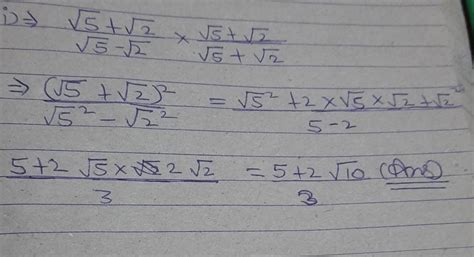 i) ⇒ (√5 + √2)/(√5 - √2) × (√5 + √2)/(√5 + √2)
⇒ (√5 + √2)²/(√5² - √2²) = (√5² + 2 × √5 × √2 + √2²)/(5 - 2)
(5 + 2 √5 × 2 √2)/3 = (5 + 2 √10)/3 (Ans)